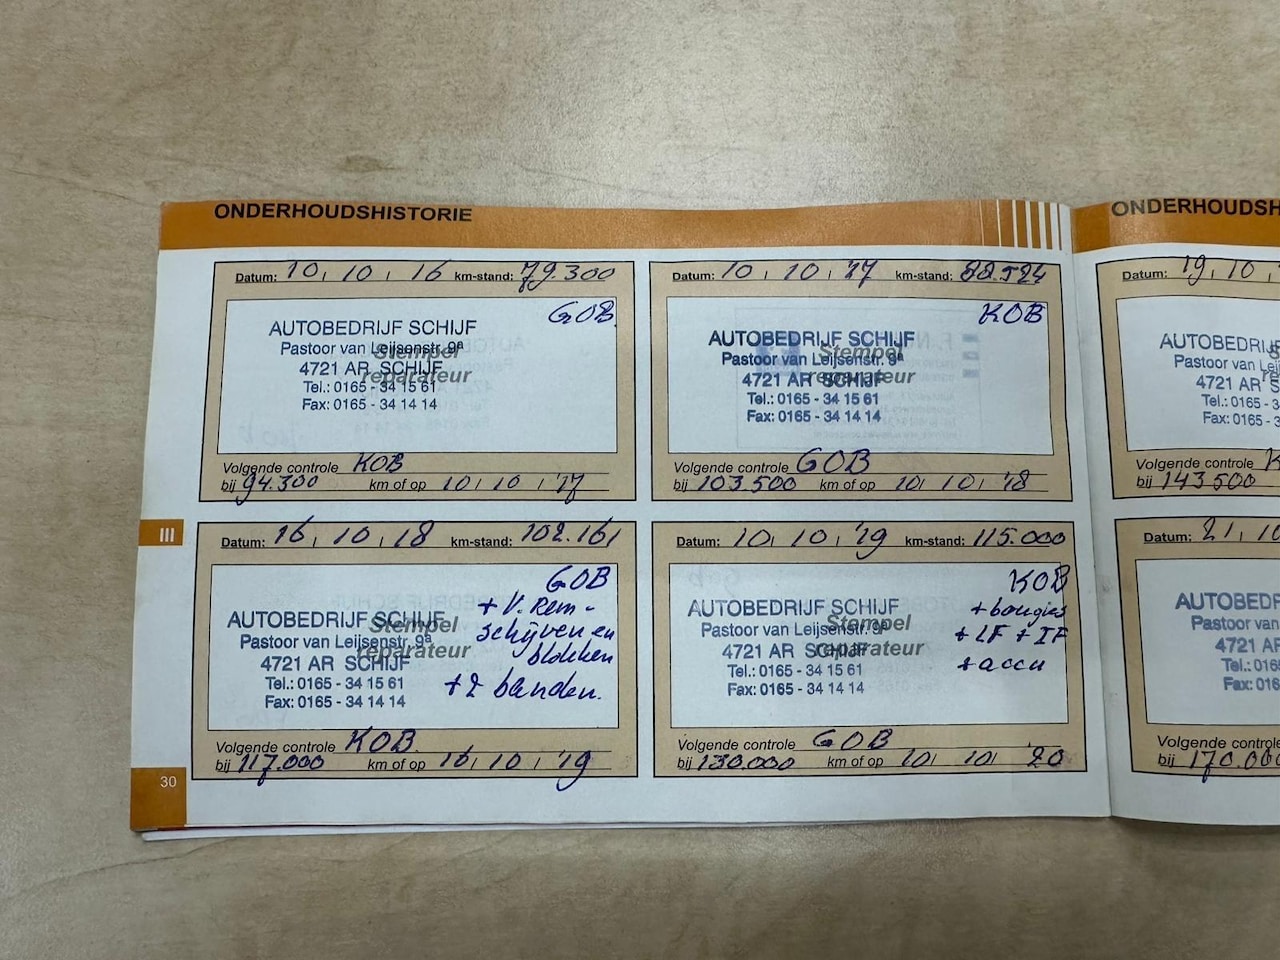 ONDERHOUDSHISTORIE
Datum: 10, 10, 16 km-stand: 79.300
GOB
AUTOBEDRIJF SCHIJF
Pastoor van Leijsenstr. 9a
Stempel
4721 AR SCHIJF
reparateur
Tel.: 0165 - 34 15 61
Fax: 0165 - 34 14 14
Volgende controle KOB
bij 94.300 km of op 10, 10, '17
Datum: 10, 10, '17 km-stand: 88.524
KOB
AUTOBEDRIJF SCHIJF
Pastoor van Leijsenstr. 9a
Stempel
4721 AR SCHIJF
reparateur
Tel.: 0165 - 34 15 61
Fax: 0165 - 34 14 14
Volgende controle GOB
bij 103.500 km of op 10, 10, '18
III
Datum: 16, 10, 18 km-stand: 102.161
GOB
+ V. Rem-
schijven en
blokken
+ 2 banden.
AUTOBEDRIJF SCHIJF
Stempel
Pastoor van Leijsenstr. 9a
reparateur
4721 AR SCHIJF
Tel.: 0165 - 34 15 61
Fax: 0165 - 34 14 14
Volgende controle KOB
bij 117.000 km of op 16, 10, '19
Datum: 10, 10, '19 km-stand: 115.000
KOB
+ bougies
+ LF + IF
+ accu
AUTOBEDRIJF SCHIJF
Stempel
Pastoor van Leijsenstr. 9a
reparateur
4721 AR SCHIJF
Tel.: 0165 - 34 15 61
Fax: 0165 - 34 14 14
Volgende controle GOB
bij 130.000 km of op 10, 10, 20
30
ONDERHOUDSH
Datum: 19, 10,
AUTOBEDRIJ
Pastoor van Lei
4721 AR S
Tel.: 0165 - 3
Fax: 0165 - 3
Volgende controle
bij 143500
Datum: 21, 10
AUTOBEDRI
Pastoor van
4721 AR
Tel.: 0165
Fax: 016
Volgende controle
bij 170.000